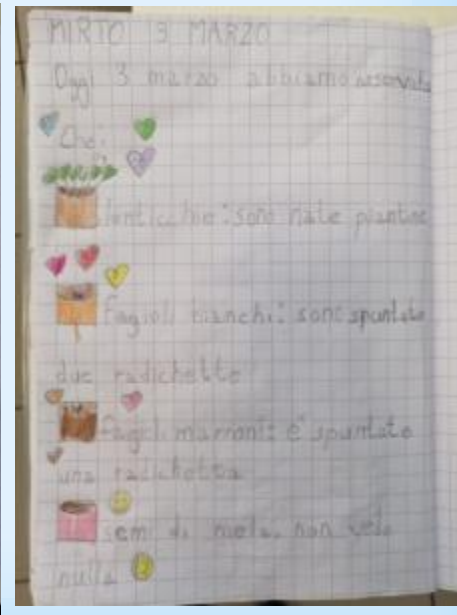 MIRTO 3 MARZO
Oggi 3 marzo abbiamo osservato
Che:
lenticchie: sono nate piantine
fagioli bianchi: sono spuntate
due radichette
fagioli marroni: è spuntata
una radichetta
semi di mela. non vedo
nulla